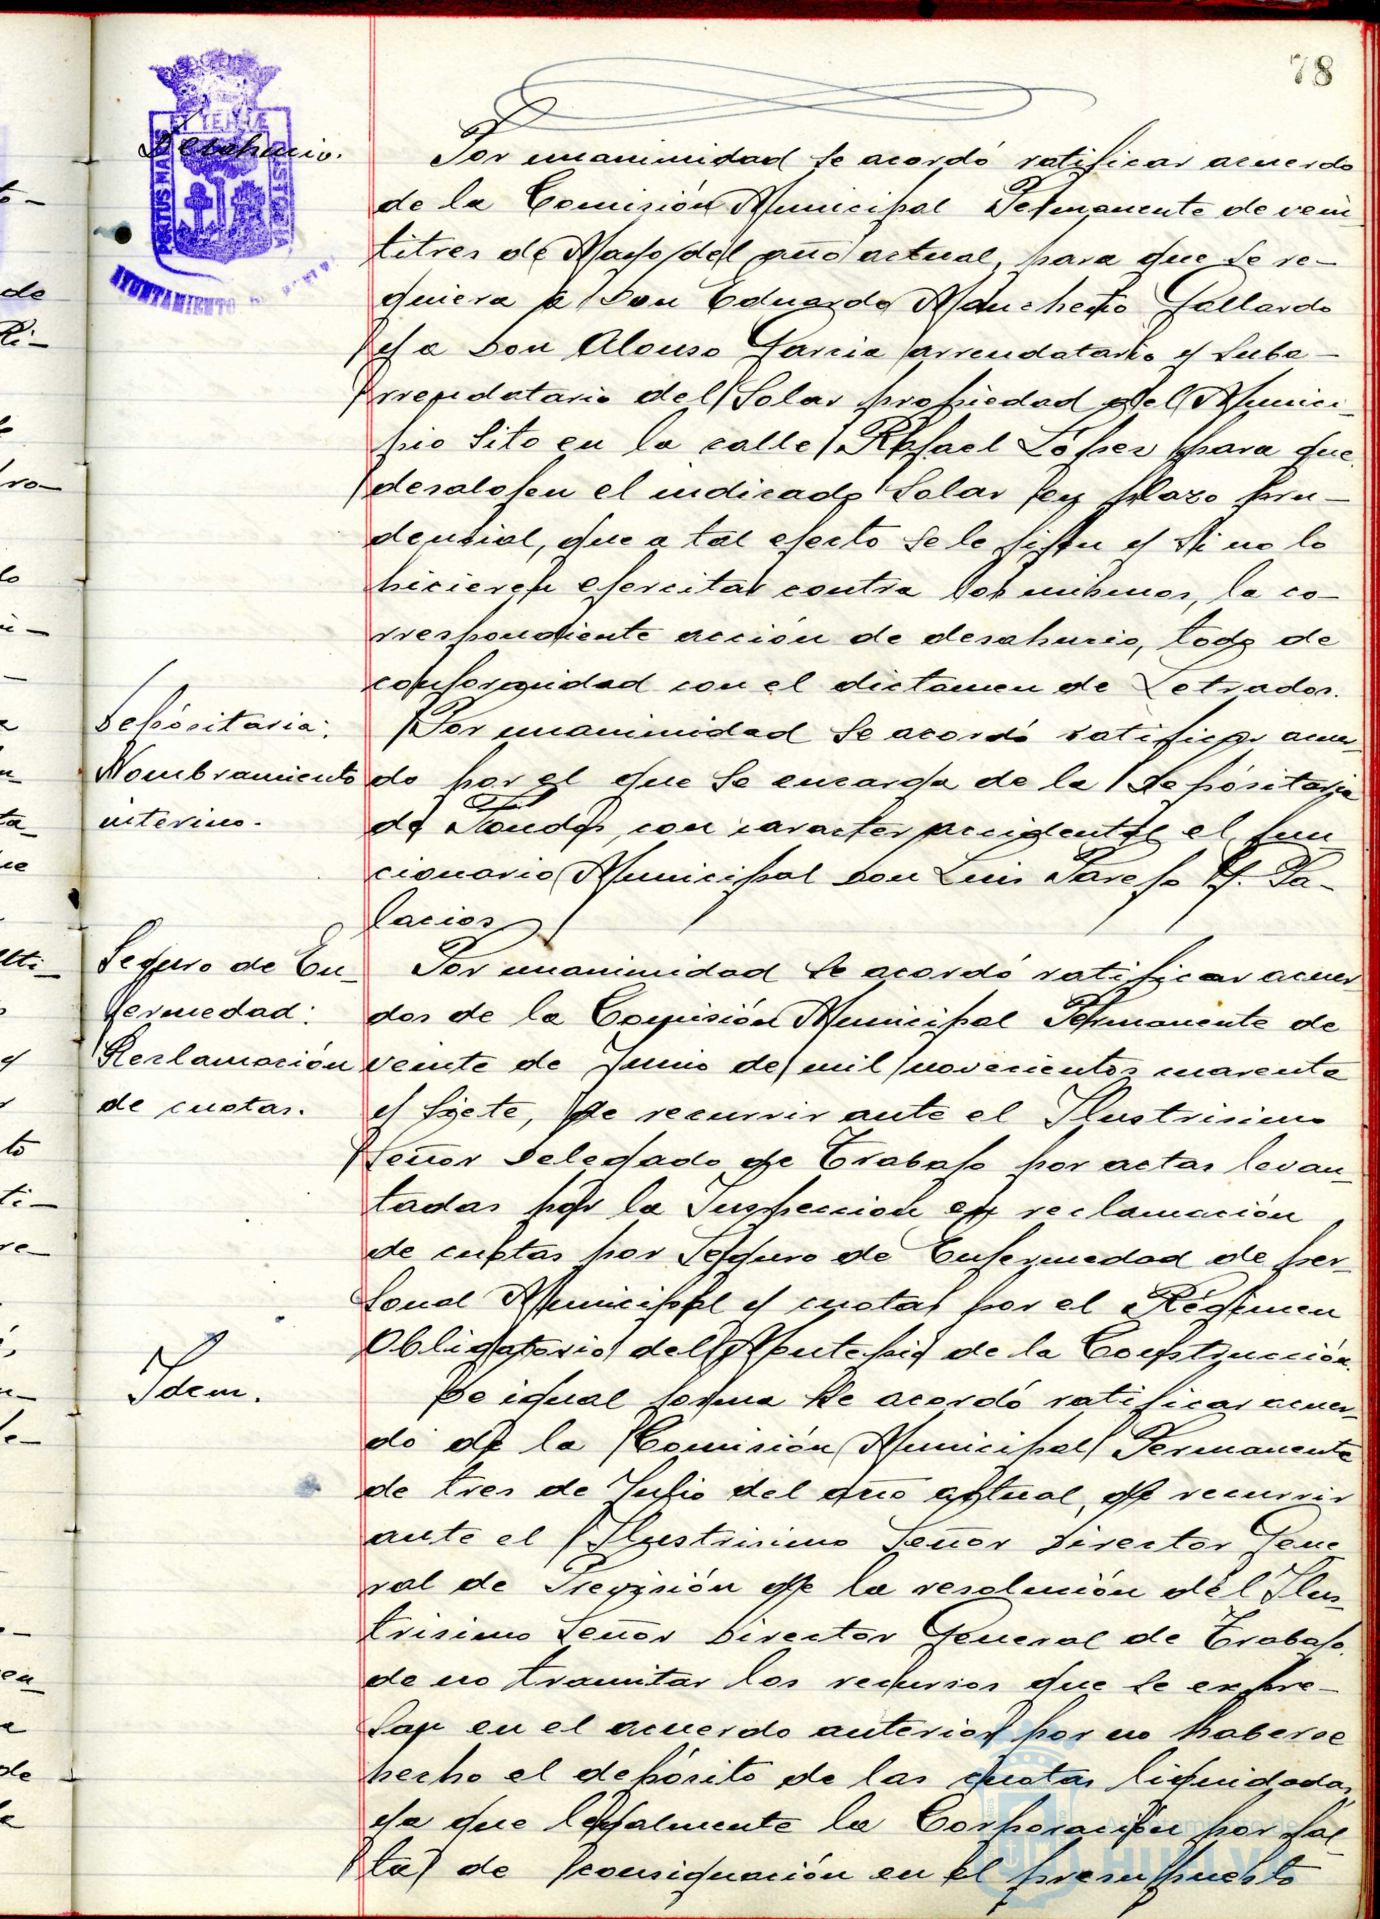 78
Desahucio.
Por unanimidad se acordó ratificar acuerdo
de la Comisión Municipal Permanente de vein
titres de Mayo del año actual, para que se re-
quiera a Don Eduardo Mancheño Gallardo
y a Don Alonso Garcia arrendatario y suba-
rrendatario del Solar propiedad del Munici-
pio sito en la calle Rafael López para que
desalojen el indicado Solar en plazo pru-
dencial, que a tal efecto se le fijen y si no lo
hicieren ejercitar contra los mismos, la co-
rrespondiente acción de desahucio, todo de
conformidad con el dictamen de Letrados.
Depósitaria:
Nombramiento
interino.
Por unanimidad se acordó ratificar acuer-
do por el que se encarga de la Depósitaria
de Fondos, con caracter accidental el fun
cionario Municipal Don Luis Parejo y P. Pa-
lacios
Seguro de En-
fermedad:
Reclamación
de cuotas.
Por unanimidad se acordó ratificar acuer-
dos de la Comisión Municipal Permanente de
veinte de Junio de mil novecientos cuarenta
y siete, de recurrir ante el Ilustrisimo
Señor Delegado de Trabajo por actas levan-
tadas por la Inspección en reclamación
de cuotas por Seguro de Enfermedad de per-
sonal Municipal y cuotas por el Régimen
Obligatorio del Montepio de la Construcción.
Idem.
De igual forma se acordó ratificar acuer-
do de la Comisión Municipal Permanente
de tres de Julio del año actual, de recurrir
ante el Ilustrisimo Señor Director Gene
ral de Previsión de la resolución del Ilus-
trisimo Señor Director General de Trabajo.
de no tramitar los recursos que se expre-
san en el acuerdo anterior por no haberse
hecho el depósito de las cuotas liquidadas,
ya que legalmente la Corporación por fal-
ta de consignación en el presupuesto
PORTUS MARIS ET TERRÆ CUSTODIA
AYUNTAMIENTO
Ayuntamiento de
HUELVA